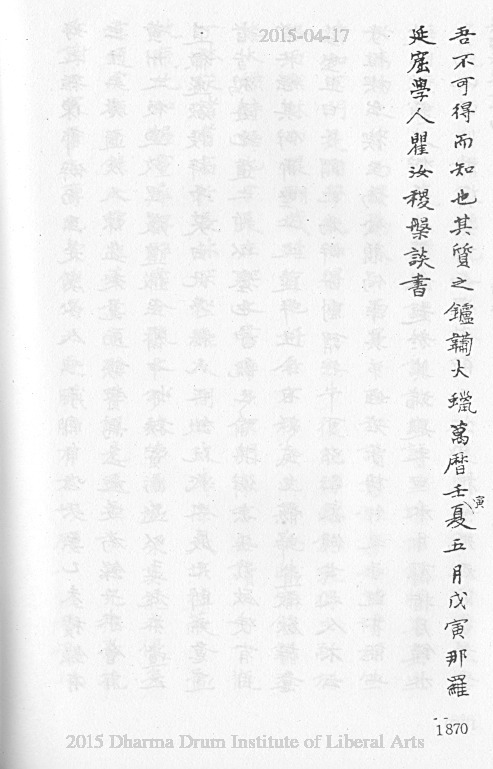 2015-04-17
吾不可得而知也其質之鑪鞴大蠟萬曆壬寅夏五月戊寅那羅
延窟學人瞿汝稷槃談書
1870
2015 Dharma Drum Institute of Liberal Arts